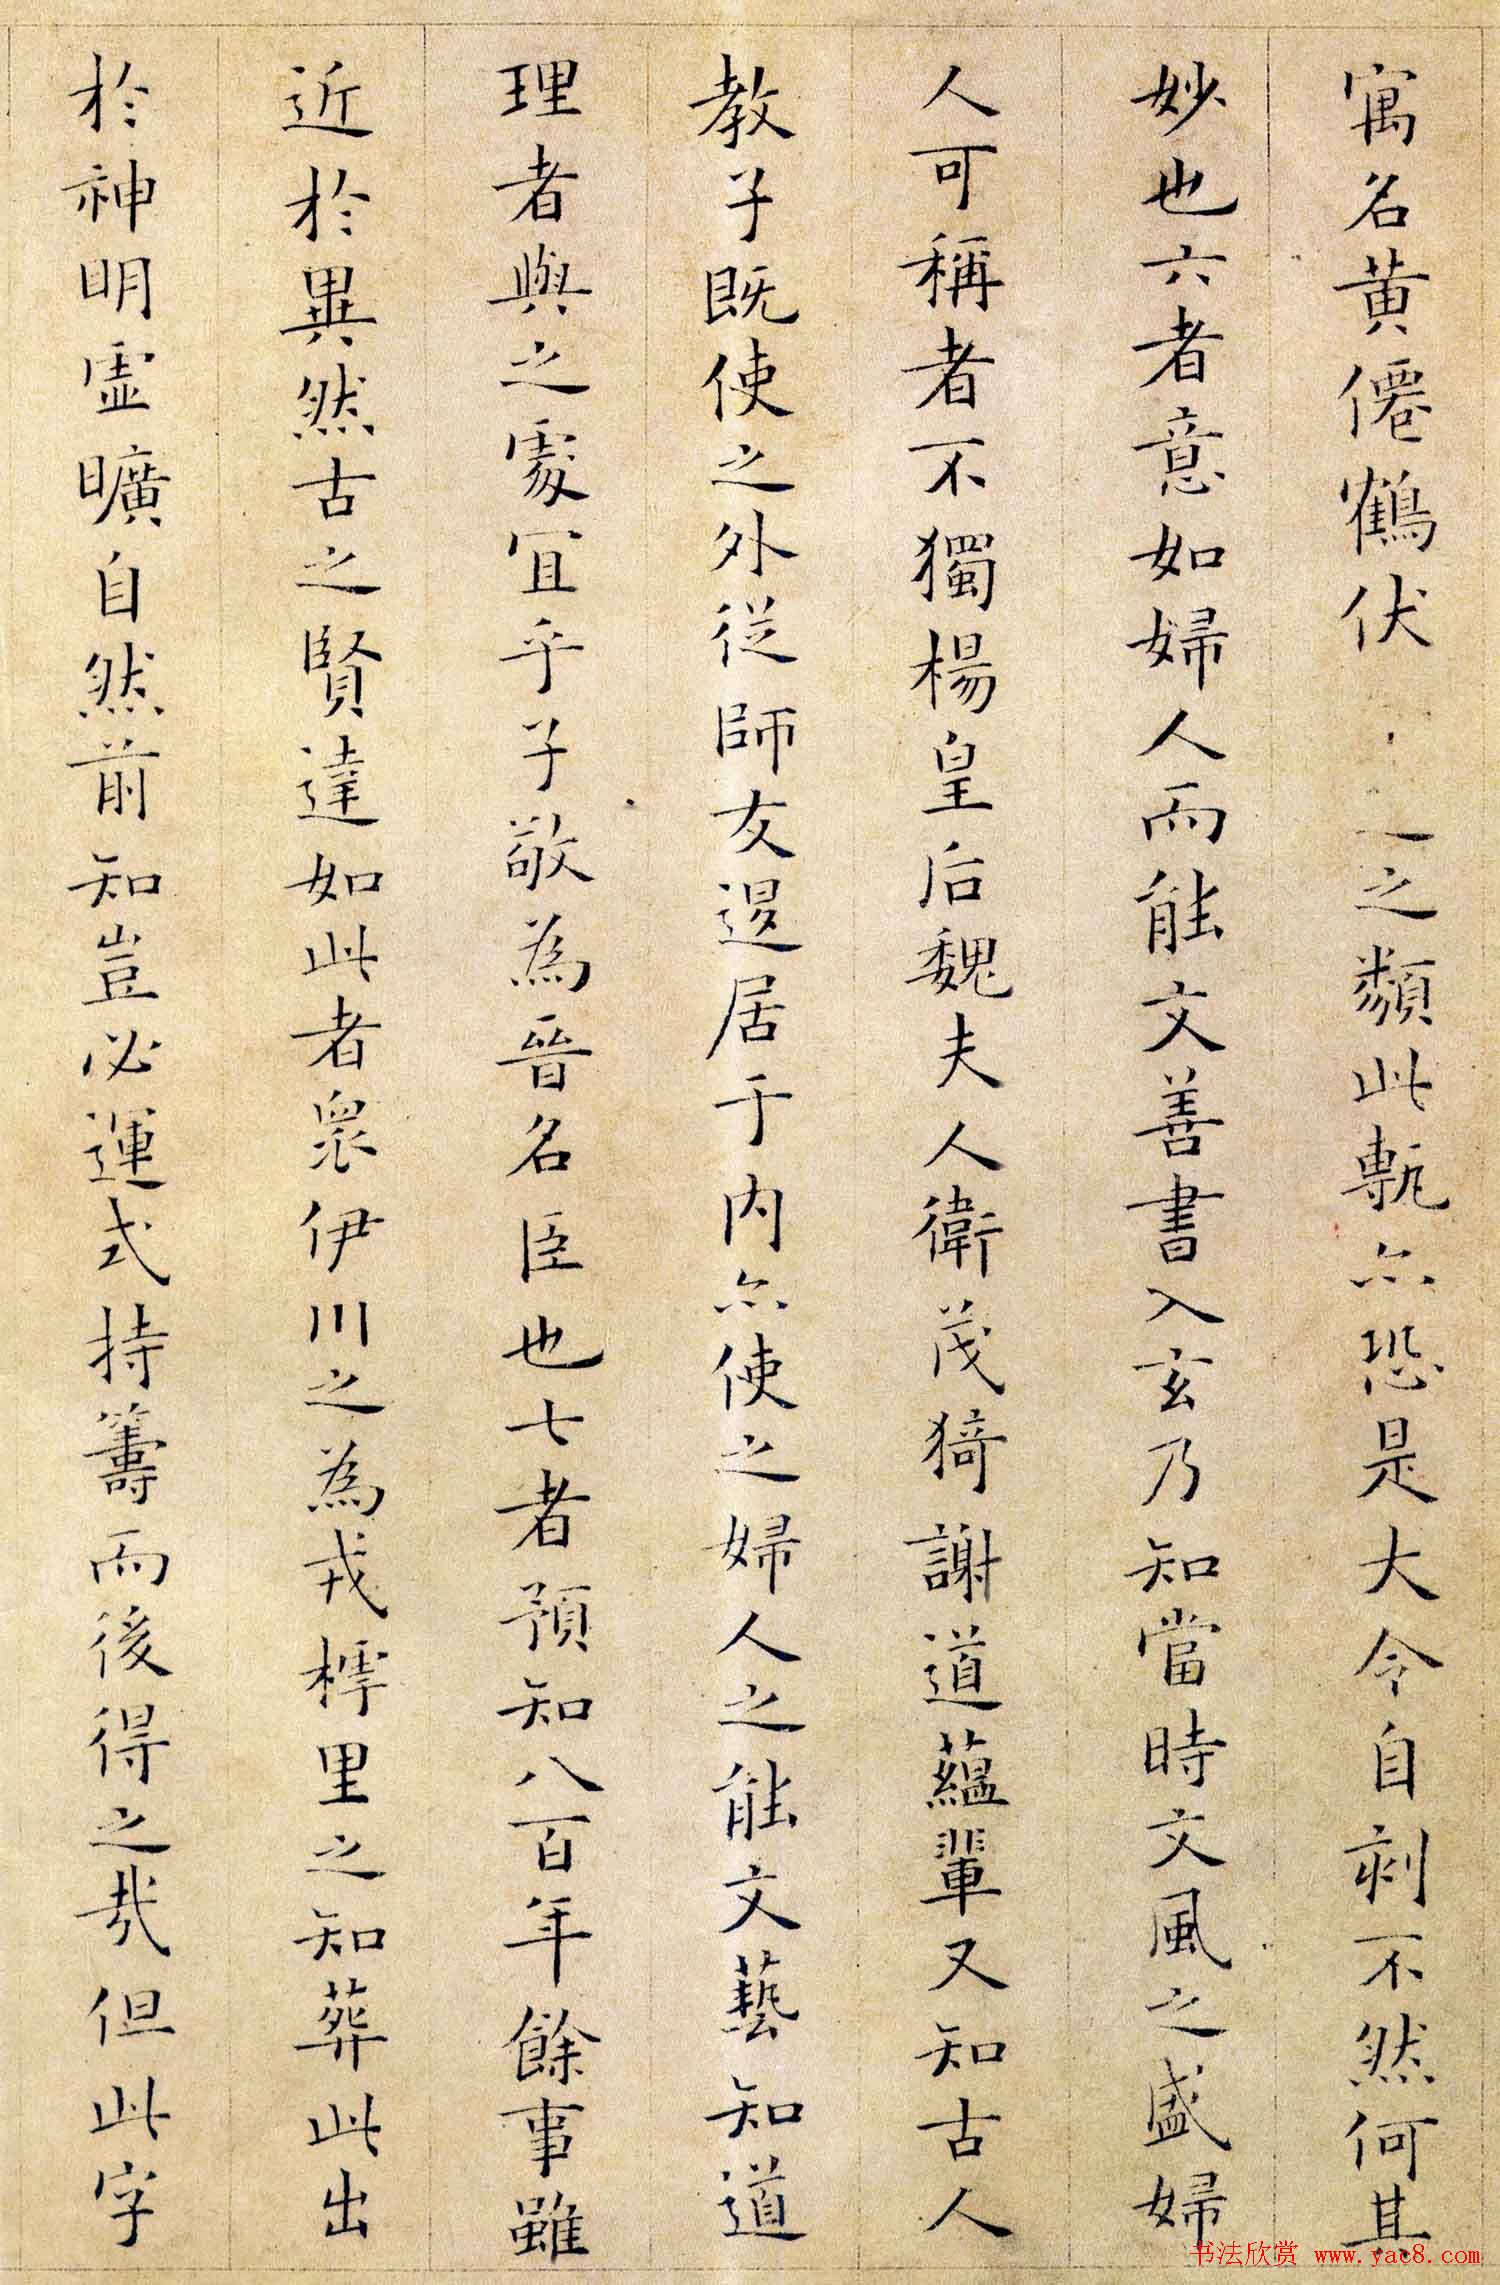 寓名黄僊鶴伏之類此甎亦恐是大令自刻不然何其
妙也六者意如婦人而能文善書入玄乃知當時文風之盛婦
人可稱者不獨楊皇后魏夫人衛茂猗謝道蘊輩又知古人
教子既使之外從師友退居于内亦使之婦人之能文藝知道
理者與之處宜乎子敬為晉名臣也七者預知八百年餘事雖
近於異然古之賢達如此者衆伊川之為戎樗里之知葬此出
於神明虛曠自然前知豈必運式持籌而後得之哉但此字
书法欣赏 www.yac8.com